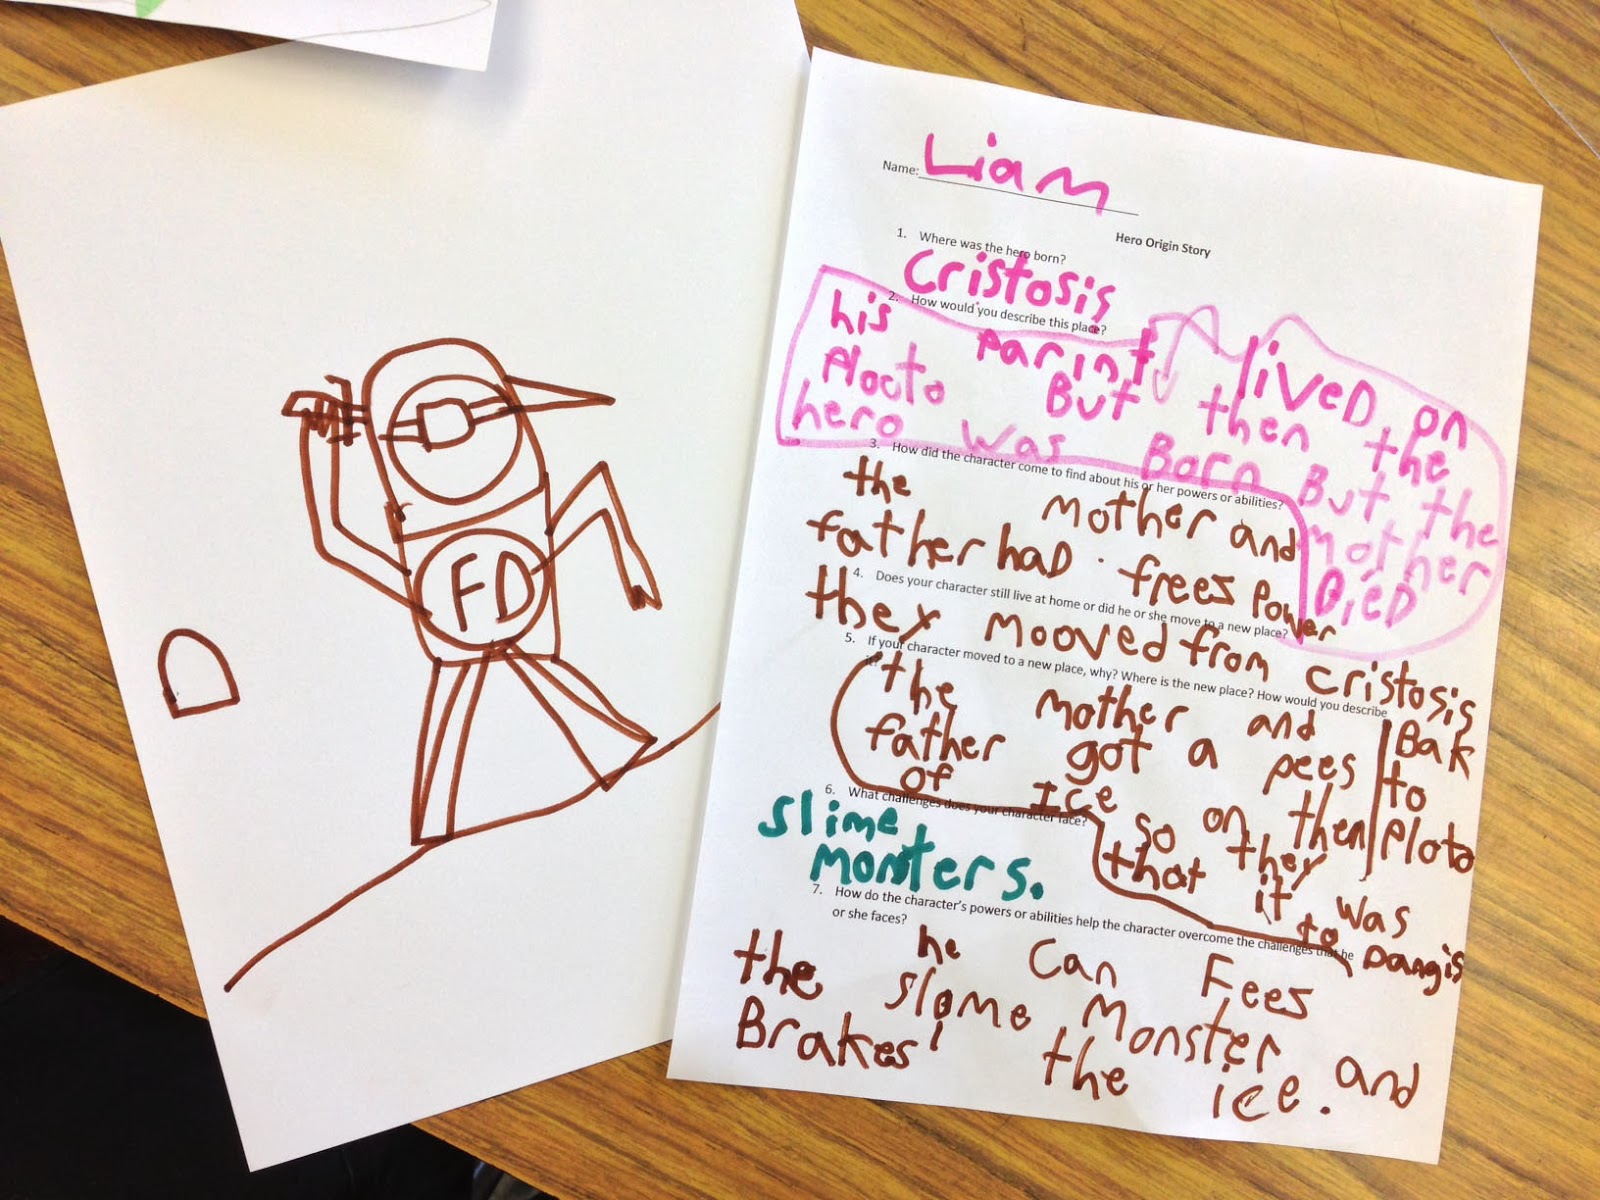 FD
Name: Liam
Hero Origin Story
1. Where was the hero born?
Cristosis
2. How would you describe this place?
his parint lived on
Plocto But then the
hero was Born But the
mother
DieD
3. How did the character come to find about his or her powers or abilities?
the mother and
father had . frees Power
4. Does your character still live at home or did he or she move to a new place?
they mooved from cristosis
Bak
to
Ploto
5. If your character moved to a new place, why? Where is the new place? How would you describe
it?
the mother and
father got a pees
of Ice on, then
so they
that it was
to Dangis
6. What challenges does your character face?
slime
monters.
7. How do the character's powers or abilities help the character overcome the challenges that he
or she faces?
he can Fees
the slome Monster and
Brakes' the ice.